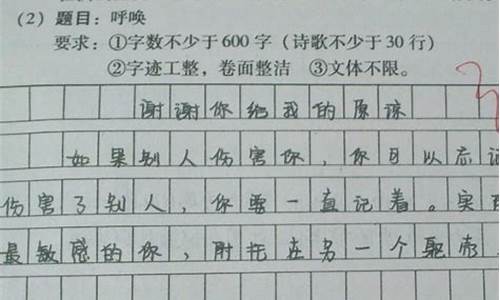 (2) 题目：呼唤
要求：①字数不少于600字（诗歌不少于30行）
②字迹工整，卷面整洁 ③文体不限。
谢谢你给我的原谅
如果别人伤害你，你可以忘
伤害了别人，你要一直记着。实
最敏感的你，托在另一个躯壳